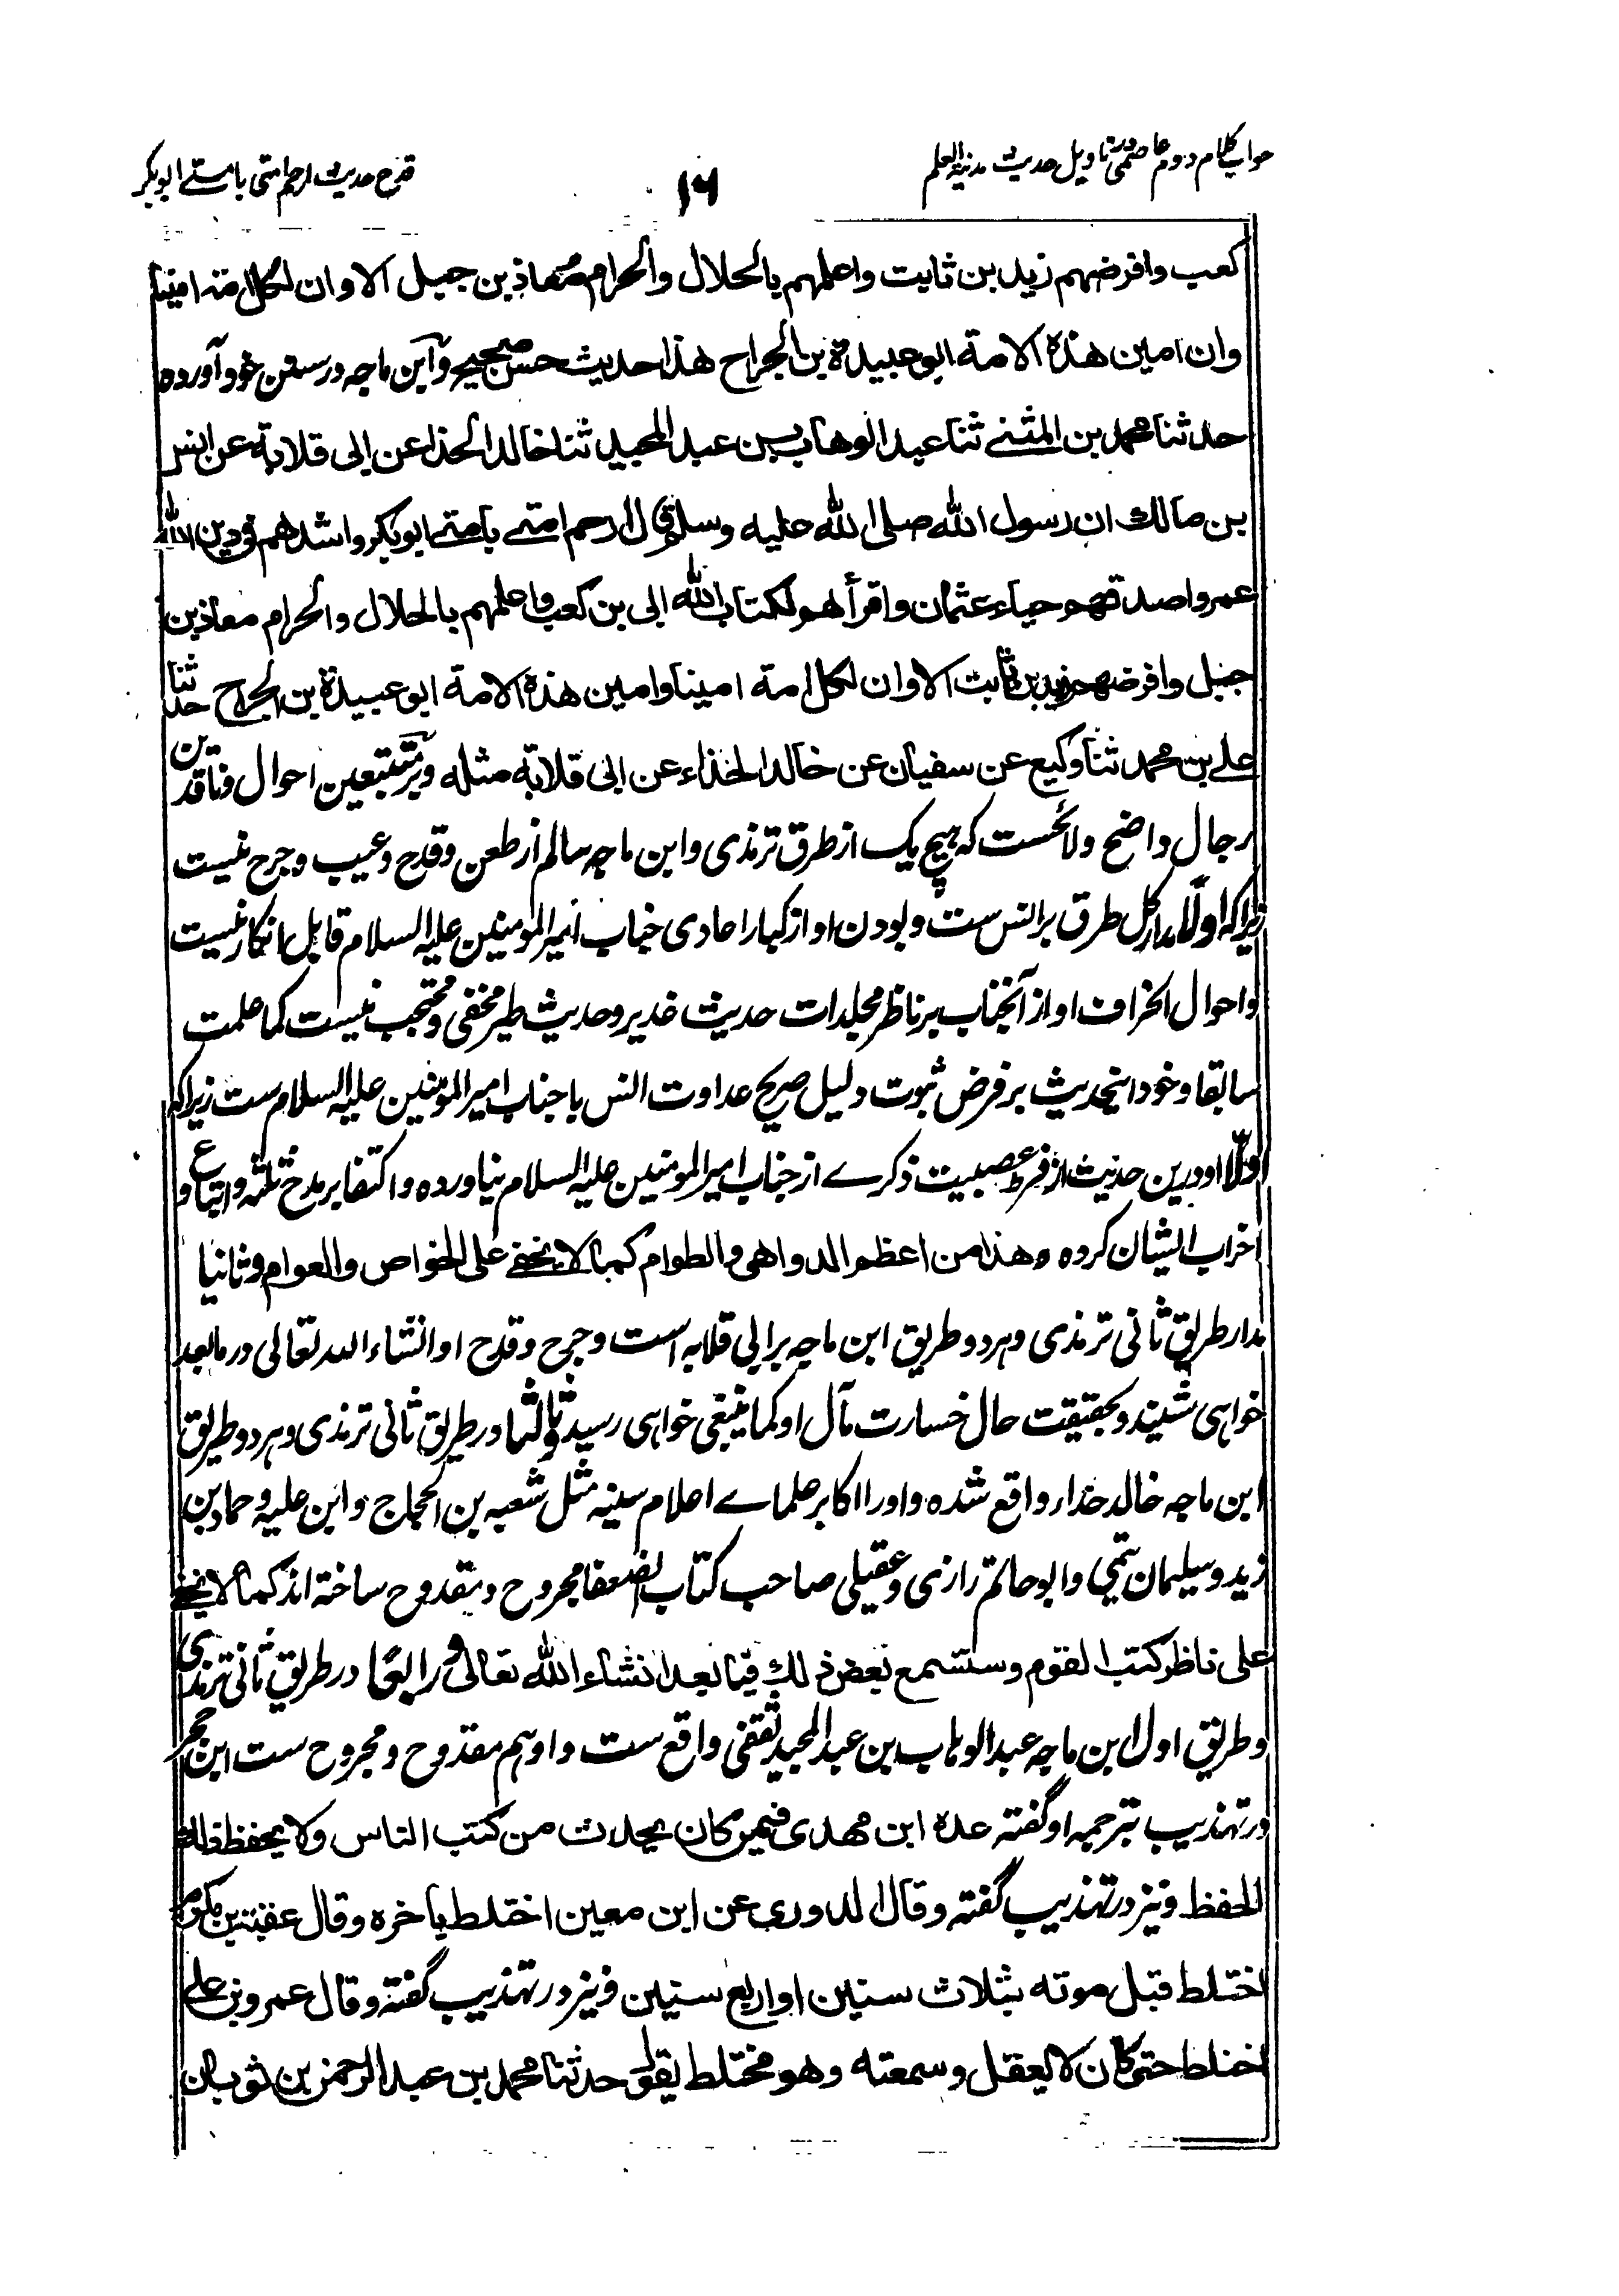 جواب کلام دوم عاصمی در تاویل حدیث مدینة العلم
۱۶
قدح حدیث ارحم امتی بامتے ابوبکر
کعب وافرضهم زید بن ثابت واعلمهم بالحلال والحرام معاذ بن جبل الا وان لکل امة امینا
وان امین هذه الامة ابو عبیدة بن الجراح هذا حدیث حسن صحیح وابن ماجه در سنن خود آورده
حدثنا محمد بن المثنے ثنا عبد الوهاب بن عبد المجید ثنا خالد الحذاء عن ابی قلابة عن انس
بن مالك ان رسول الله صلی الله علیه وسلم قال ارحم امتے بامتے ابوبکر واشدهم فی دین الله
عمر واصدقهم حیاء عثمان واقرأهم لکتاب الله ابی بن کعب واعلمهم بالحلال والحرام معاذ بن
جبل وافرضهم زید بن ثابت الا وان لکل امة امینا وامین هذه الامة ابو عبیدة بن الجراح حدثنا
علے بن محمد ثنا وکیع عن سفیان عن خالد الحذاء عن ابی قلابة مثله وبر متتبعین احوال وناقدین
رجال واضح ولائحست که هیچ یک از طرق ترمذی وابن ماجه سالم از طعن وقدح وعیب وجرح نیست
زیراکه اولا مدار کل طرق بر انس ست وبودن او از کبار اعادی جناب امیر المومنین علیه السلام قابل انکار نیست
واحوال انحراف او از آنجناب بر ناظر مجلدات حدیث غدیر وحدیث طیر مخفی ومحتجب نیست کما علمت
سابقا وخود اینحدیث بر فرض ثبوت دلیل صریح عداوت انس با جناب امیر المومنین علیه السلام ست زیراکه
اولا او درین حدیث از فرط عصبیت ذکرے از جناب امیر المومنین علیه السلام نیاورده واکتفا بر مدح ثلثه واتباع و
احزاب ایشان کرده وهذا من اعظم الدواهی والطوام کما لا یخفے علی الخواص والعوام وثانیا
مدار طریق ثانی ترمذی وهر دو طریق ابن ماجه بر ابی قلابه است وجرح وقدح او انشاء الله تعالی در مابعد
خواهی شنید وبحقیقت حال خسارت مآل او کما ینبغی خواهی رسید وثالثا در طریق ثانی ترمذی وهر دو طریق
ابن ماجه خالد حذاء واقع شده واورا اکابر علماے اعلام سنیه مثل شعبه بن الحجاج وابن علیه وحماد بن
زید وسلیمان تیمی وابو حاتم رازی وعقیلی صاحب کتاب الضعفا مجروح ومقدوح ساخته اند کما لا یخفے
علی ناظر کتب القوم وستسمع بعض ذلك فیما بعد انشاء الله تعالی ورابعا در طریق ثانی ترمذی
وطریق اول ابن ماجه عبد الوهاب بن عبد المجید ثقفی واقع ست واو هم مقدوح ومجروح ست ابن حجر
در تهذیب بترجمه او گفته عده ابن مهدی فیمن کان یحدث من کتب الناس ولا یحفظ ذلك
الحفظ ونیز در تهذیب گفته وقال الدوری عن ابن معین اختلط باخره وقال عقبة بن مکرم
اختلط قبل موته بثلاث سنین او اربع سنین ونیز در تهذیب گفته وقال عمرو بن علے
اختلط حتی کان لا یعقل وسمعته وهو مختلط یقول حدثنا محمد بن عبد الرحمن بن ثوبان